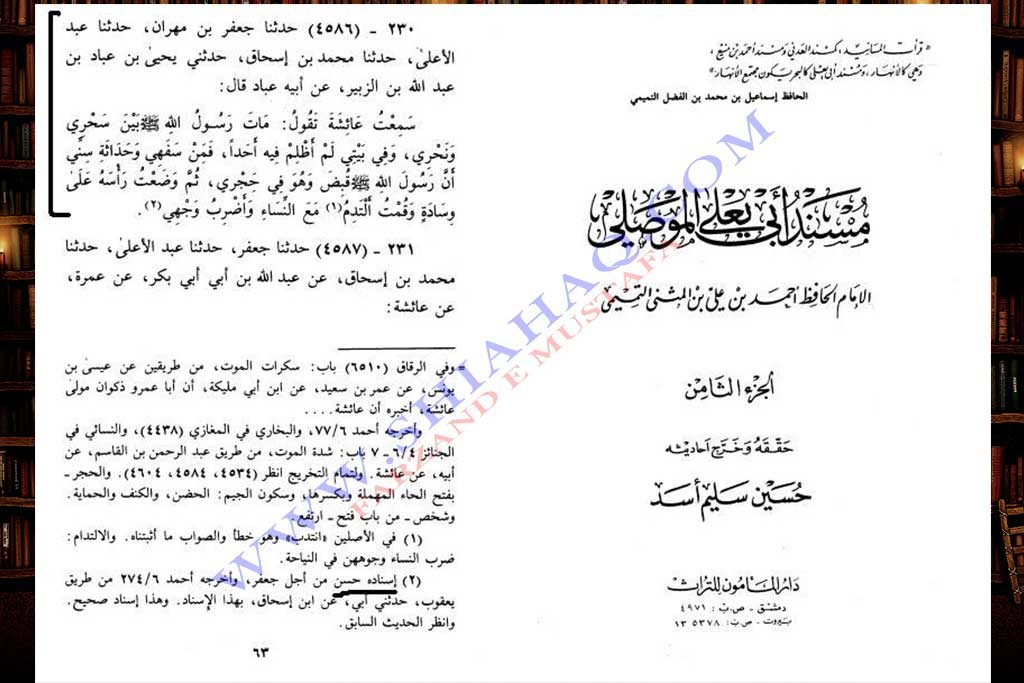 ٢٣٠ - (٤٥٨٦) حدثنا جعفر بن مهران، حدثنا عبد
الأعلىٰ، حدثنا محمد بن إسحاق، حدثني يحيىٰ بن عباد بن
عبد الله بن الزبير، عن أبيه عباد قال:
سَمِعْتُ عَائِشَةَ تَقُولُ: مَاتَ رَسُولُ اللهِ ﷺ بَيْنَ سَحْرِي
وَنَحْرِي، وَفِي بَيْتِي لَمْ أَظْلِمْ فِيهِ أَحَداً، فَمِنْ سَفَهِي وَحَدَاثَةِ سِنِّي
أَنَّ رَسُولَ اللهِ ﷺ قُبِضَ وَهُوَ فِي حِجْرِي، ثُمَّ وَضَعْتُ رَأْسَهُ عَلَىٰ
وِسَادَةٍ وَقُمْتُ أَلْتَدِمُ(١) مَعَ النِّسَاءِ وَأَضْرِبُ وَجْهِي(٢).
٢٣١ - (٤٥٨٧) حدثنا جعفر، حدثنا عبد الأعلىٰ، حدثنا
محمد بن إسحاق، عن عبد الله بن أبي أبي بكر، عن عمرة،
عن عائشة:
= وفي الرقاق (٦٥١٠) باب: سكرات الموت، من طريقين عن عيسىٰ بن
يونس، عن عمر بن سعيد، عن ابن أبي مليكة، أن أبا عمرو ذكوان مولىٰ
عائشة، أخبره أن عائشة....
وأخرجه أحمد ٧٧/٦، والبخاري في المغازي (٤٤٣٨)، والنسائي في
الجنائز ٦/٤ - ٧ باب: شدة الموت، من طريق عبد الرحمن بن القاسم، عن
أبيه، عن عائشة. ولتمام التخريج انظر (٤٥٣٤، ٤٥٨٤، ٤٦٠٤). والحجر -
بفتح الحاء المهملة وبكسرها، وسكون الجيم: الحضن، والكنف والحماية.
وشخص - من باب فتح - ارتفع.
(١) في الأصلين «انتدب» وهو خطأ والصواب ما أثبتناه. والالتدام:
ضرب النساء وجوههن في النياحة.
(٢) إسناده حسن من أجل جعفر، وأخرجه أحمد ٢٧٤/٦ من طريق
يعقوب، حدثني أبي، عن ابن إسحاق، بهذا الإسناد. وهذا إسناد صحيح.
وانظر الحديث السابق.
٦٣
«قرأت المسانيد، كمسند العدني ومسند أحمد بن منيع،
وهي كالأنهار، ومسند أبي يعلى كالبحر يكون مجتمع الأنهار»
الحافظ إسماعيل بن محمد بن الفضل التميمي
مُسْنَدُ أَبِي يَعْلَى المَوْصِلِي
الإمام الحافظ أحمد بن علي بن المثنى التميمي
الجزء الثامن
حققه وخرج أحاديثه
حسين سليم أسد
دار المأمون للتراث
دمشق - ص.ب: ٤٩٧١
بيروت - ص.ب: ٥٣٧٨ ١٣
WWW.SHIAHAQ.COM
FARZAND E MUSTAFA